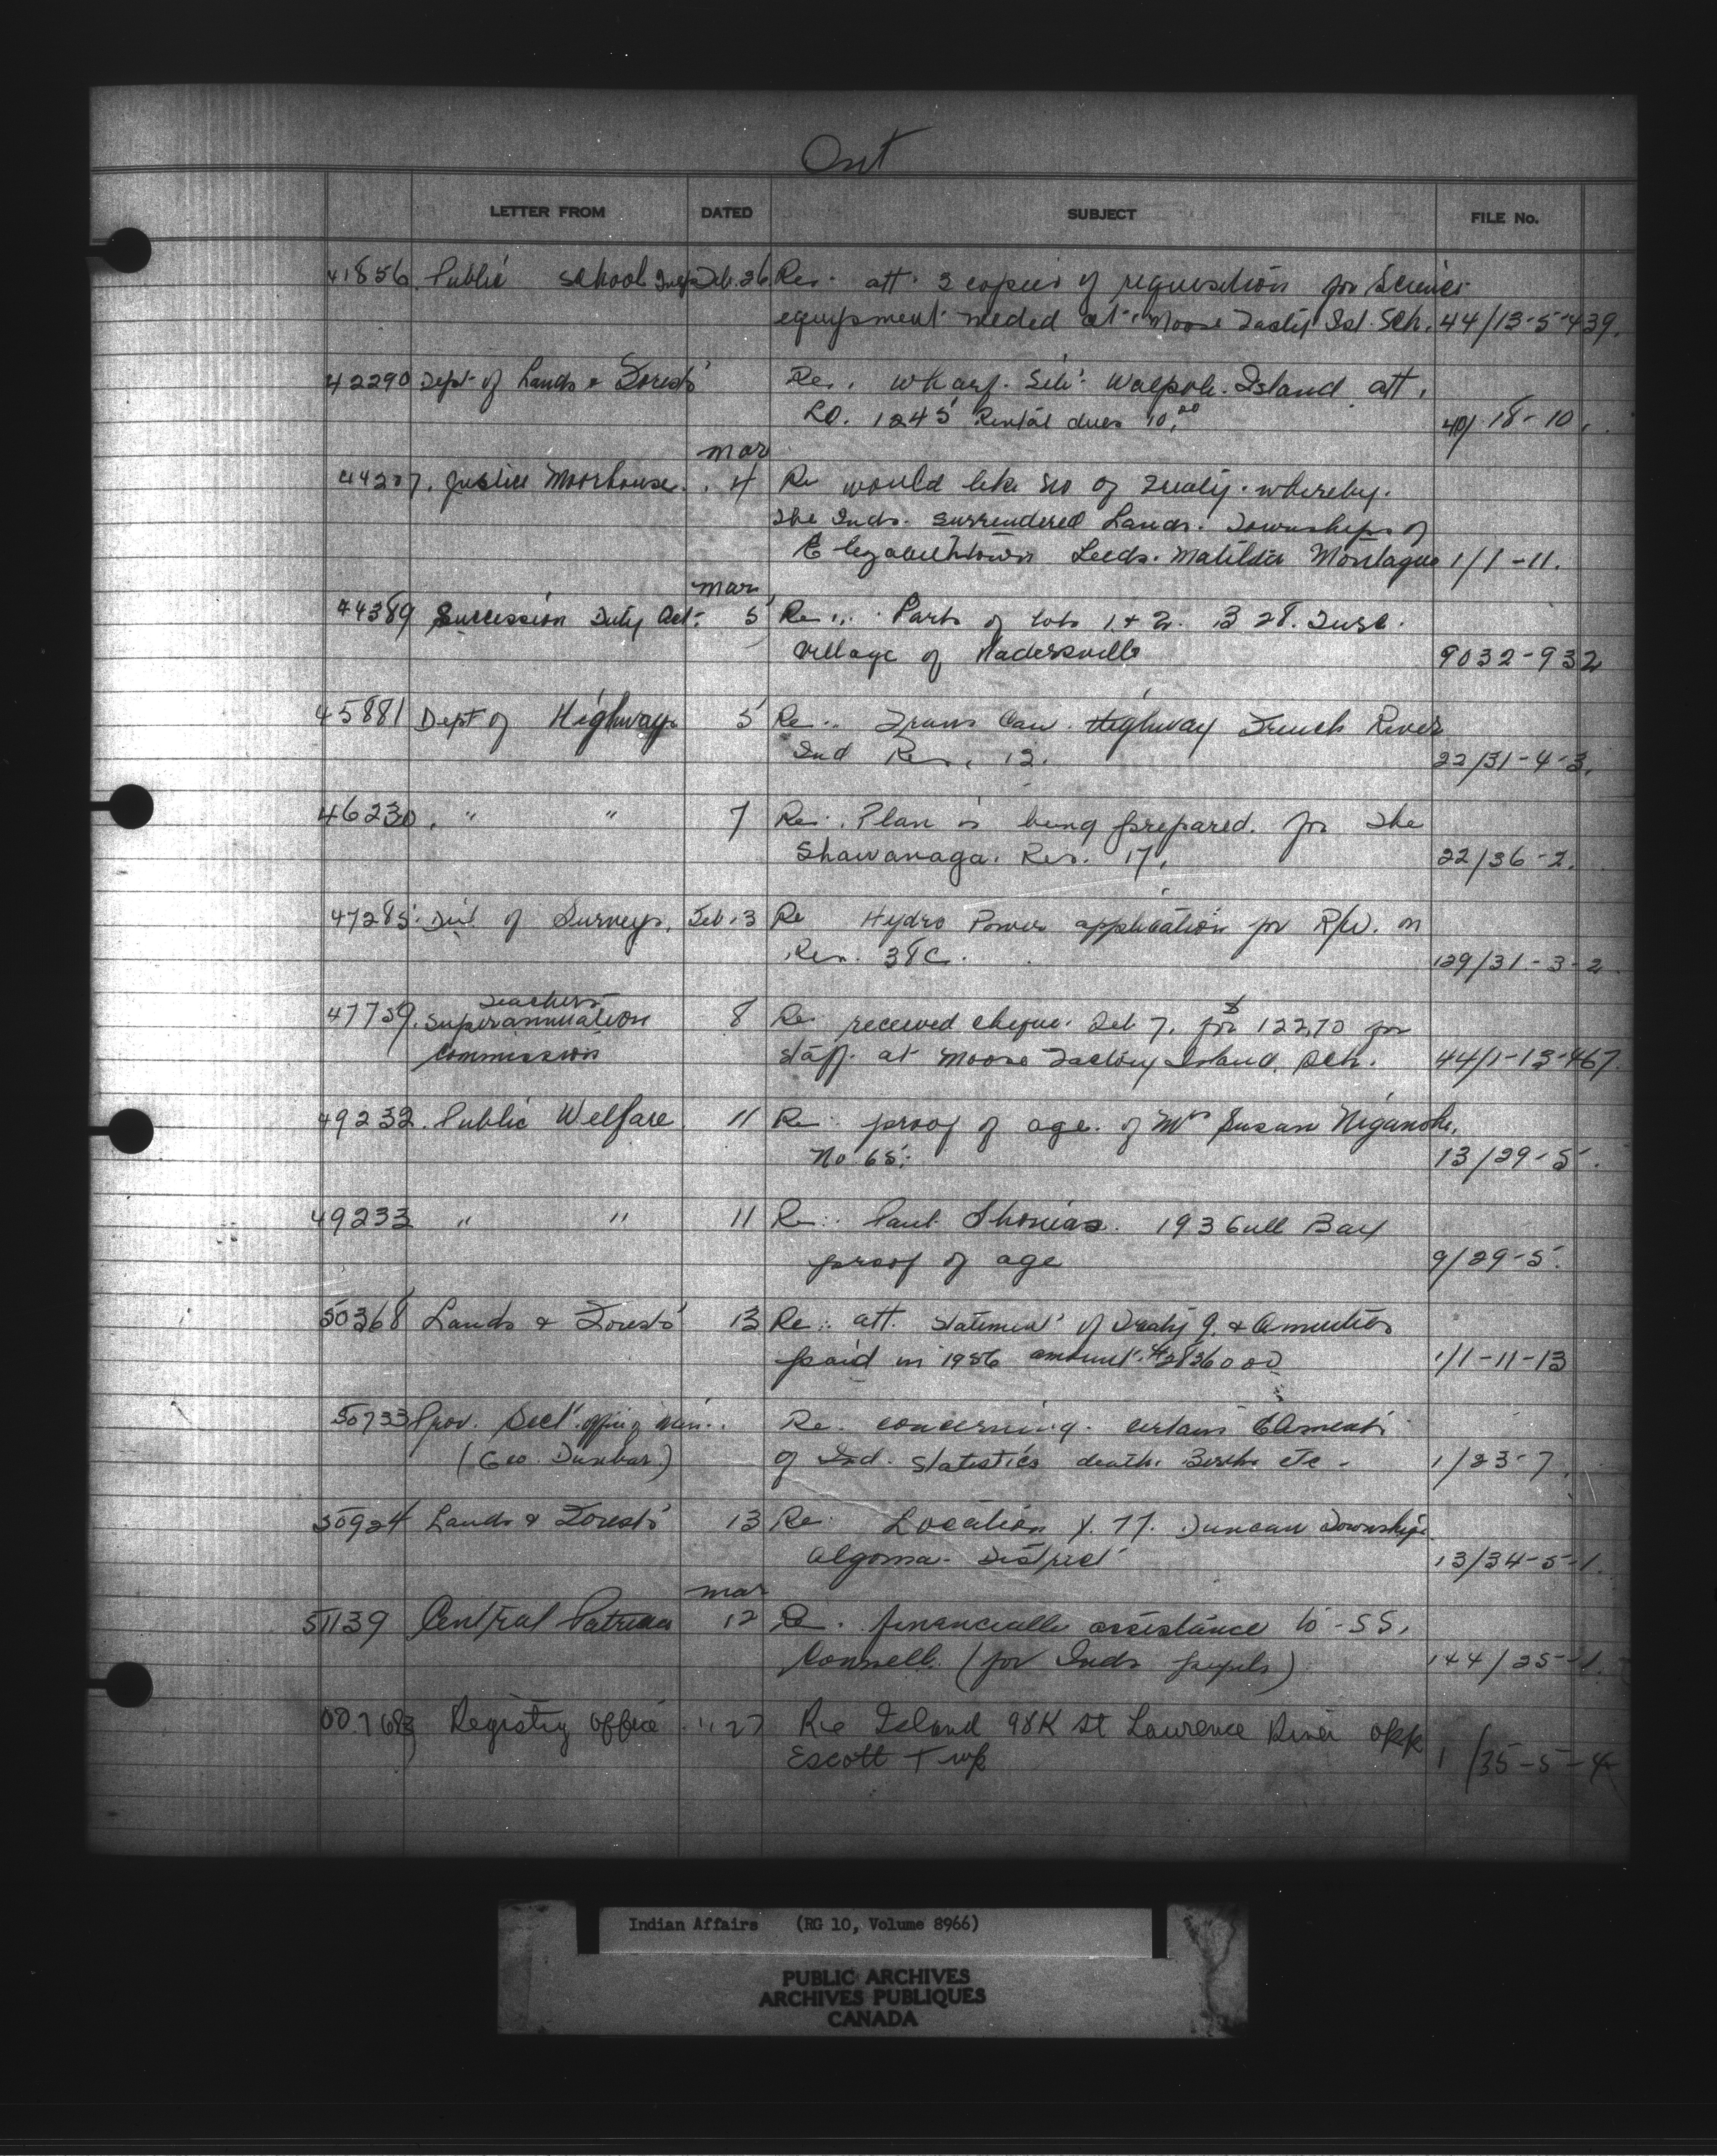 Ont
LETTER FROM DATED SUBJECT FILE No.
41856 Public School Insp Feb. 26 Re. att. 3 copies of requisition for Science
equipment needed at Moose Facty Isl. Sch. 44/13-5-439.
42290 Dept of Lands & Forests Re. wharf. Site Walpole Island att.
L.O. 1245 Rental dues 10.00 40/18-10.
Mar
44207. Justice Moorhouse. 4 Re would like no of Treaty. whereby.
the Inds. surrendered Lands. Townships of
Elizabethtown Leeds. Matilda Montague 1/1-11.
Mar
44389 Succession Duty Act. 5 Re. Parts of lots 1 & 2. B 28. Tusc.
Village of Hadersville 9032-932
45881 Dept of Highways 5 Re. Trans Can. Highway French River
Ind Res. 13. 22/31-4-3.
46230. " " 7 Re. Plan is being prepared. for the
Shawanaga. Res. 17. 22/36-2.
47285. Dist of Surveys. Feb. 3 Re Hydro Power application for R/W. on
Res. 38C. 129/31-3-2
47759. Teachers
Superannuation 8 Re. received cheque. Feb 7. for $122.70 for
Commission staff. at Moose Factory Island. Sch. 44/1-13-467.
49232. Public Welfare. 11 Re. proof of age. of Mrs Susan Niganobe.
No 65. 13/29-5.
49233 " " 11 Re. Paul Thomas. 193 Gull Bay
proof of age 9/29-5.
50368 Lands & Forests 13 Re. att. statement of Treaty 9. & Annuities
paid in 1956 amount. 1/1-11-13
50733 Prov. Sect. office of Min..
Re. concerning. certain
(Geo. Dunbar.) of Ind. statistics death. Births etc - 1/23-7.
50924 Lands & Forests 13 Re. Location Y. 77. Duncan Township.
Algoma - District 13/34-5-1.
Mar
51139 Central Patricia 12 Re. financially assistance to - SS.
Connell. (for Inds pupils) 144/25-1.
007683 Registry Office " 27 Re Island 98K St Lawrence River opp
Escott Twp 1/35-5-4
Indian Affairs (RG 10, Volume 8966)
PUBLIC ARCHIVES
ARCHIVES PUBLIQUES
CANADA